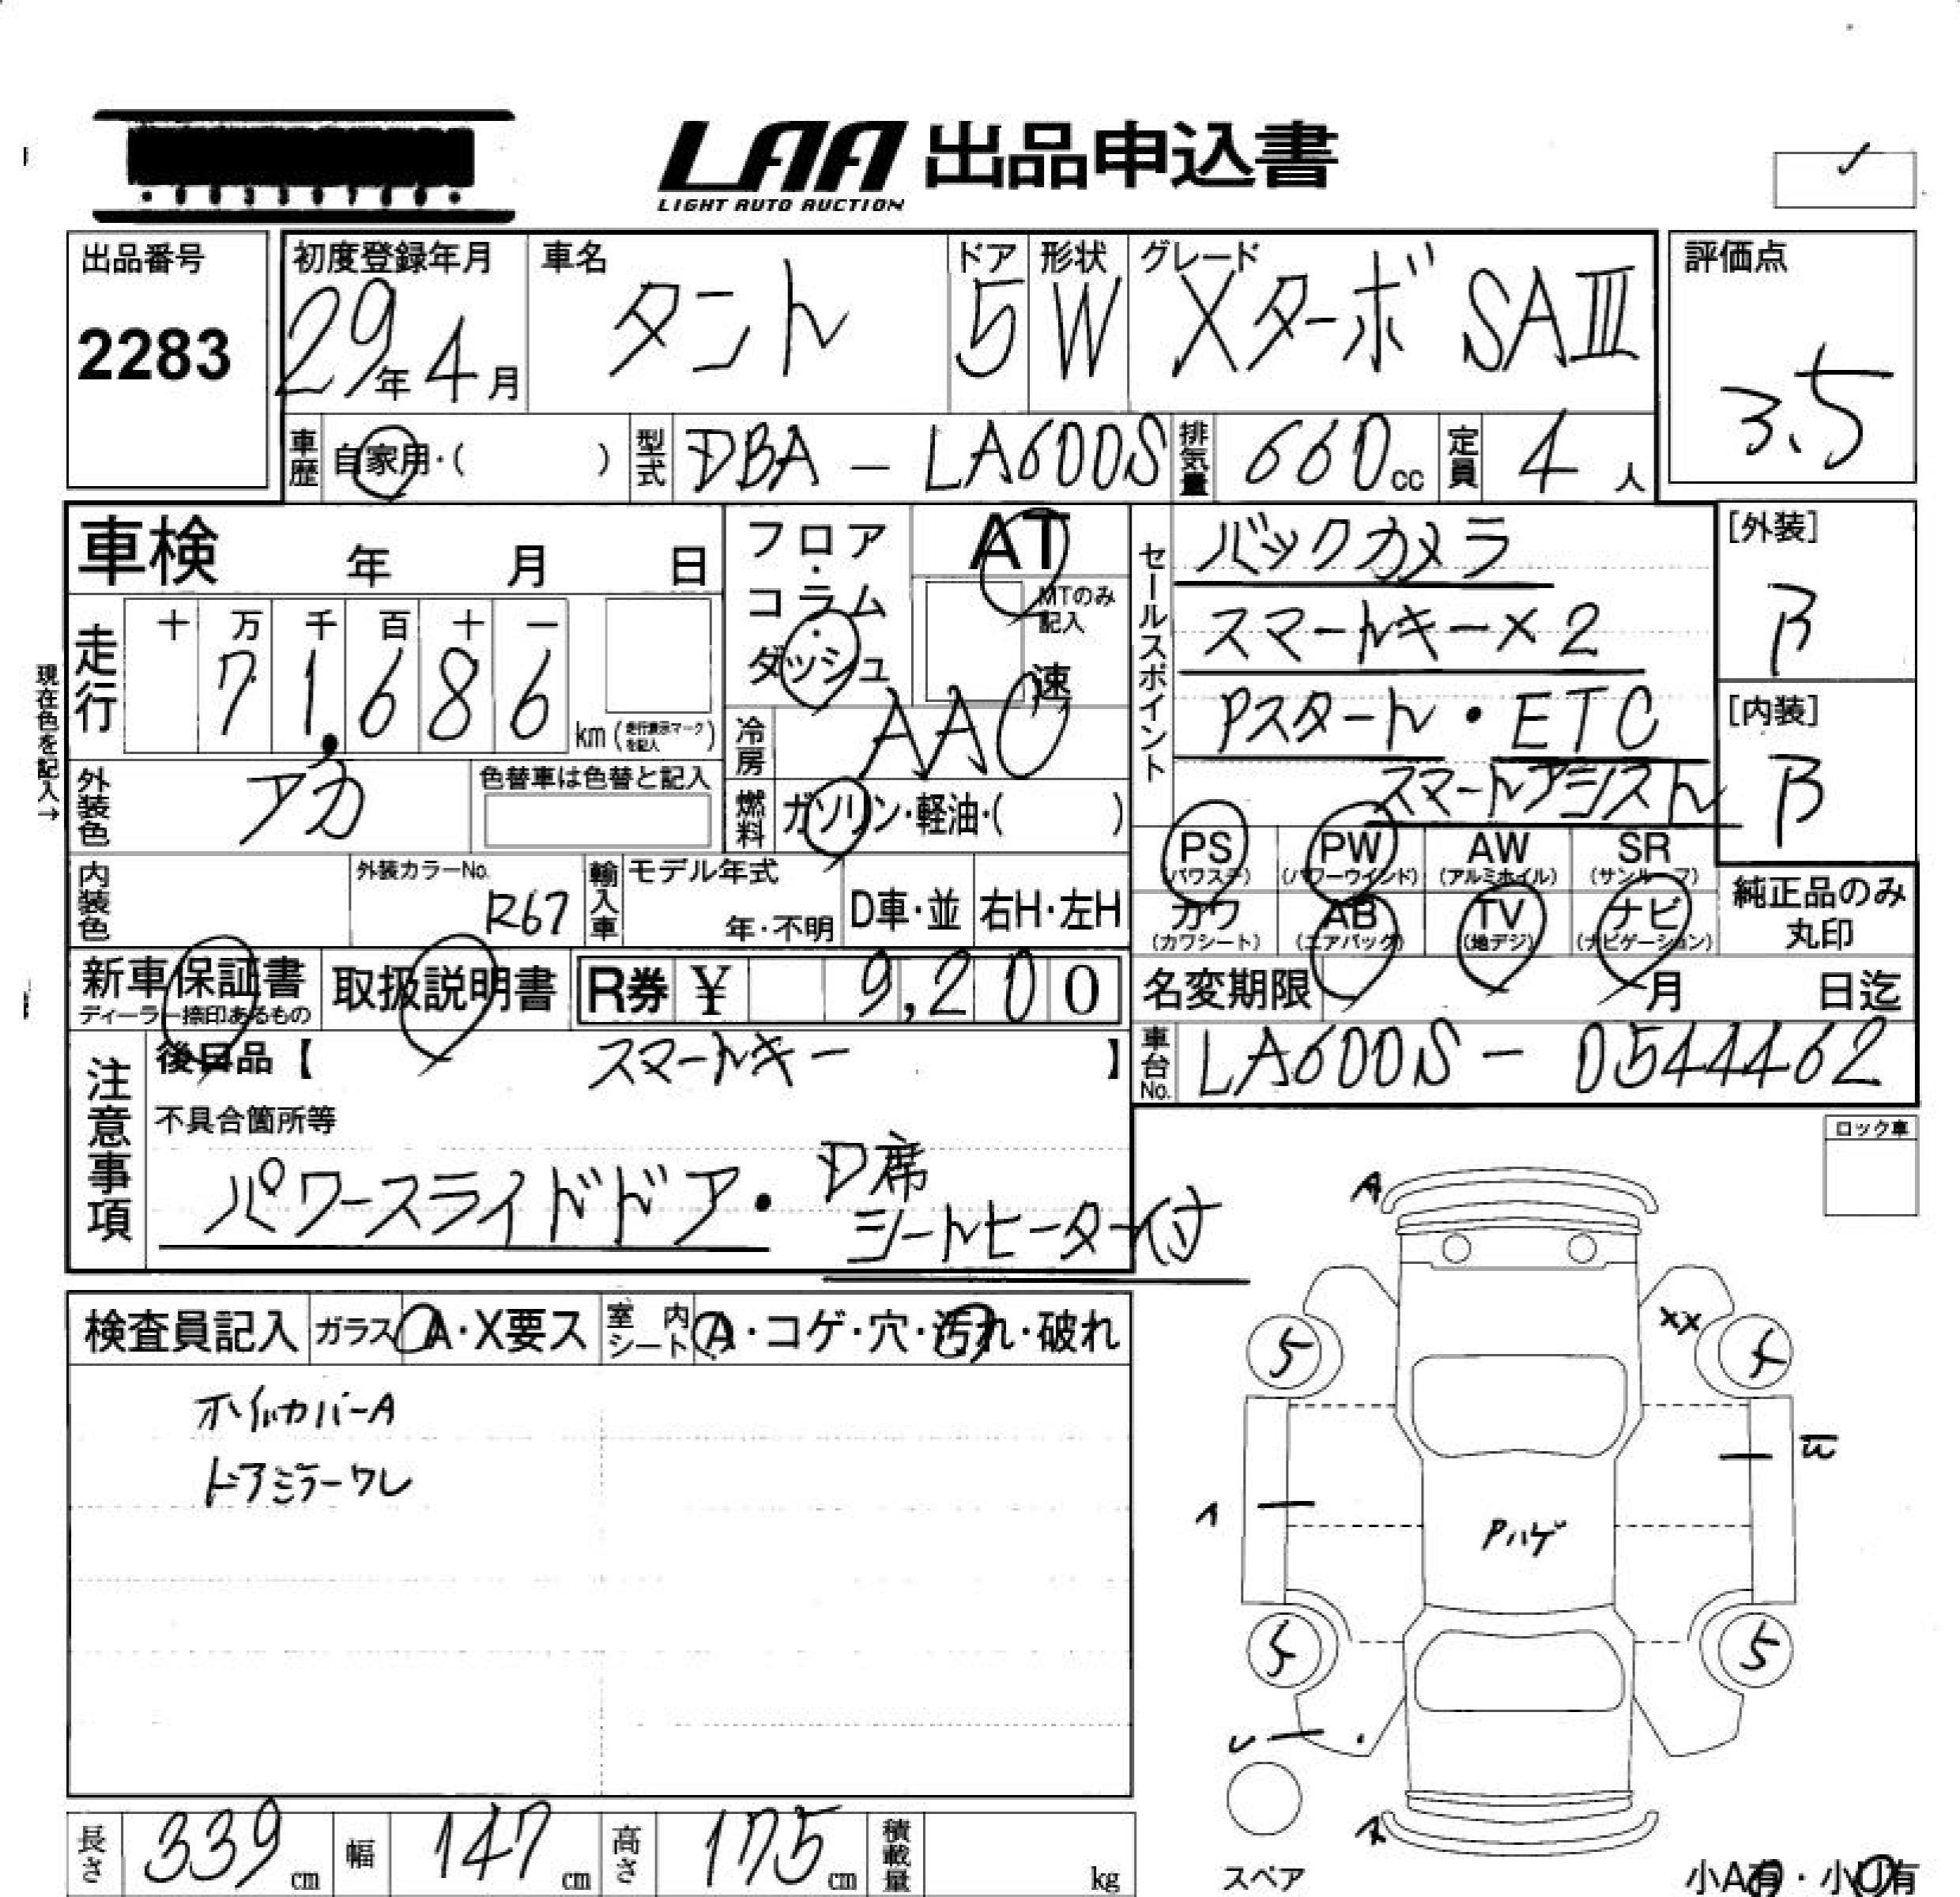 LAA 出品申込書
LIGHT AUTO AUCTION
出品番号
2283
初度登録年月
29年4月
車名
タント
ドア
5
形状
W
グレード
XターボSAⅢ
評価点
3.5
車歴 自家用・( )
型式 DBA - LA600S
排気量 660cc
定員 4人
車検 年 月 日
フロア・コラム・ダッシュ
AT
MTのみ記入
速
セールスポイント
バックカメラ
スマートキー×2
Pスタート・ETC
スマートアシスト
[外装]
B
[内装]
B
現在色を記入→
走行 十 万 千 百 十 一
71,686 km(走行表示マークを記入)
冷房 AAC
外装色 アカ
色替車は色替と記入
燃料 ガソリン・軽油・( )
PS (パワステ) PW (パワーウインド) AW (アルミホイル) SR (サンルーフ)
カワ (カワシート) AB (エアバッグ) TV (地デジ) ナビ (ナビゲーション)
純正品のみ丸印
内装色
外装カラーNo. R67
輸入車 モデル年式 年・不明 D車・並 右H・左H
新車保証書
ディーラー捺印あるもの
取扱説明書
R券 ¥ 9,200
名変期限 月 日迄
車台No. LA600S - 0544462
注意事項
後日品【 スマートキー 】
不具合箇所等
パワースライドドア・D席
シートヒーター付
ロック車
検査員記入 ガラス A・X要ス 室内シート A・コゲ・穴・汚れ・破れ
ホイルカバーA
ドアミラーワレ
A
XX
5
4
Pハゲ
5
5
スペア
小A有・小U有
長さ 339cm
幅 147cm
高さ 175cm
積載量 kg